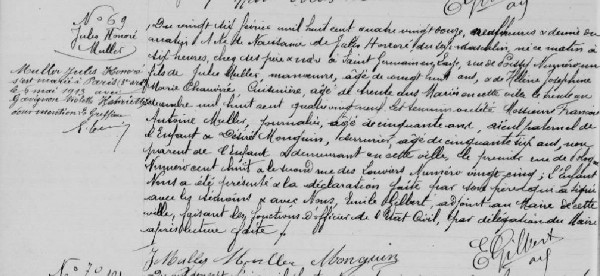 N° 69
Jules Honoré
Muller
Muller Jules Honoré
s'est marié à Paris
le 6 mai 1913 avec
Henriette
Du vingt six février mil huit cent quatre vingt douze, neuf heures & demie du
matin, Acte de Naissance de Jules Honoré, du sexe masculin, né ce matin à
six heures, chez ses père & mère à Saint Germain en Laye, rue de Poissy Numéro
fils de Jules Muller, manoeuvre, âgé de vingt huit ans, & de Hélène Joséphine
Marie Chauvière, Cuisinière, âgée de trente ans Mariés en cette ville le
mil huit cent quatre vingt neuf. Les témoins ont été Messieurs François
Antoine Muller, journalier, âgé de cinquante ans, aïeul paternel de
l'Enfant & Désiré Monguin, serrurier, âgé de cinquante six ans, non
parent de l'Enfant & demeurant en cette ville, le premier rue de
Numéro cent huit & le second rue des Louviers Numéro vingt cinq; L'Enfant
Nous a été présenté & la déclaration faite par son père qui a signé
avec les témoins & avec Nous, Emile Gilbert, adjoint au Maire de cette
ville, faisant les fonctions d'officier de l'Etat Civil, par délégation du Maire
après lecture faite
J. Muller Muller Monguin
E Gilbert
adj
N° 70